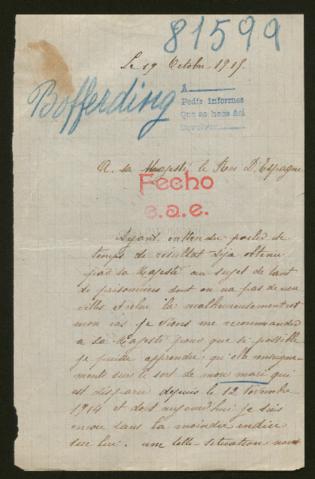 81599
Le 19 Octobre 1915.
Bofferding
A
Pedir informes
Que se hace
Devolver
A sa Majesté le Roi D'Espagne
Fecho
e.a.e.
Ayant entendu parler de
temps de résultat déja obtenu
par sa Majesté au sujet de tant
de prisonniers dont on n'a pas de nou
velles et celui la malheureusement est
mon cas je viens me recommander
a sa Majesté pour que si possible
je puisse apprendre quelle renseigne
ments sur le sort de mon mari qui
est disparu depuis le 12 Novembre
1914 et dont aujourd'hui je suis
encore sans la moindre indice
sur lui. une telle situation